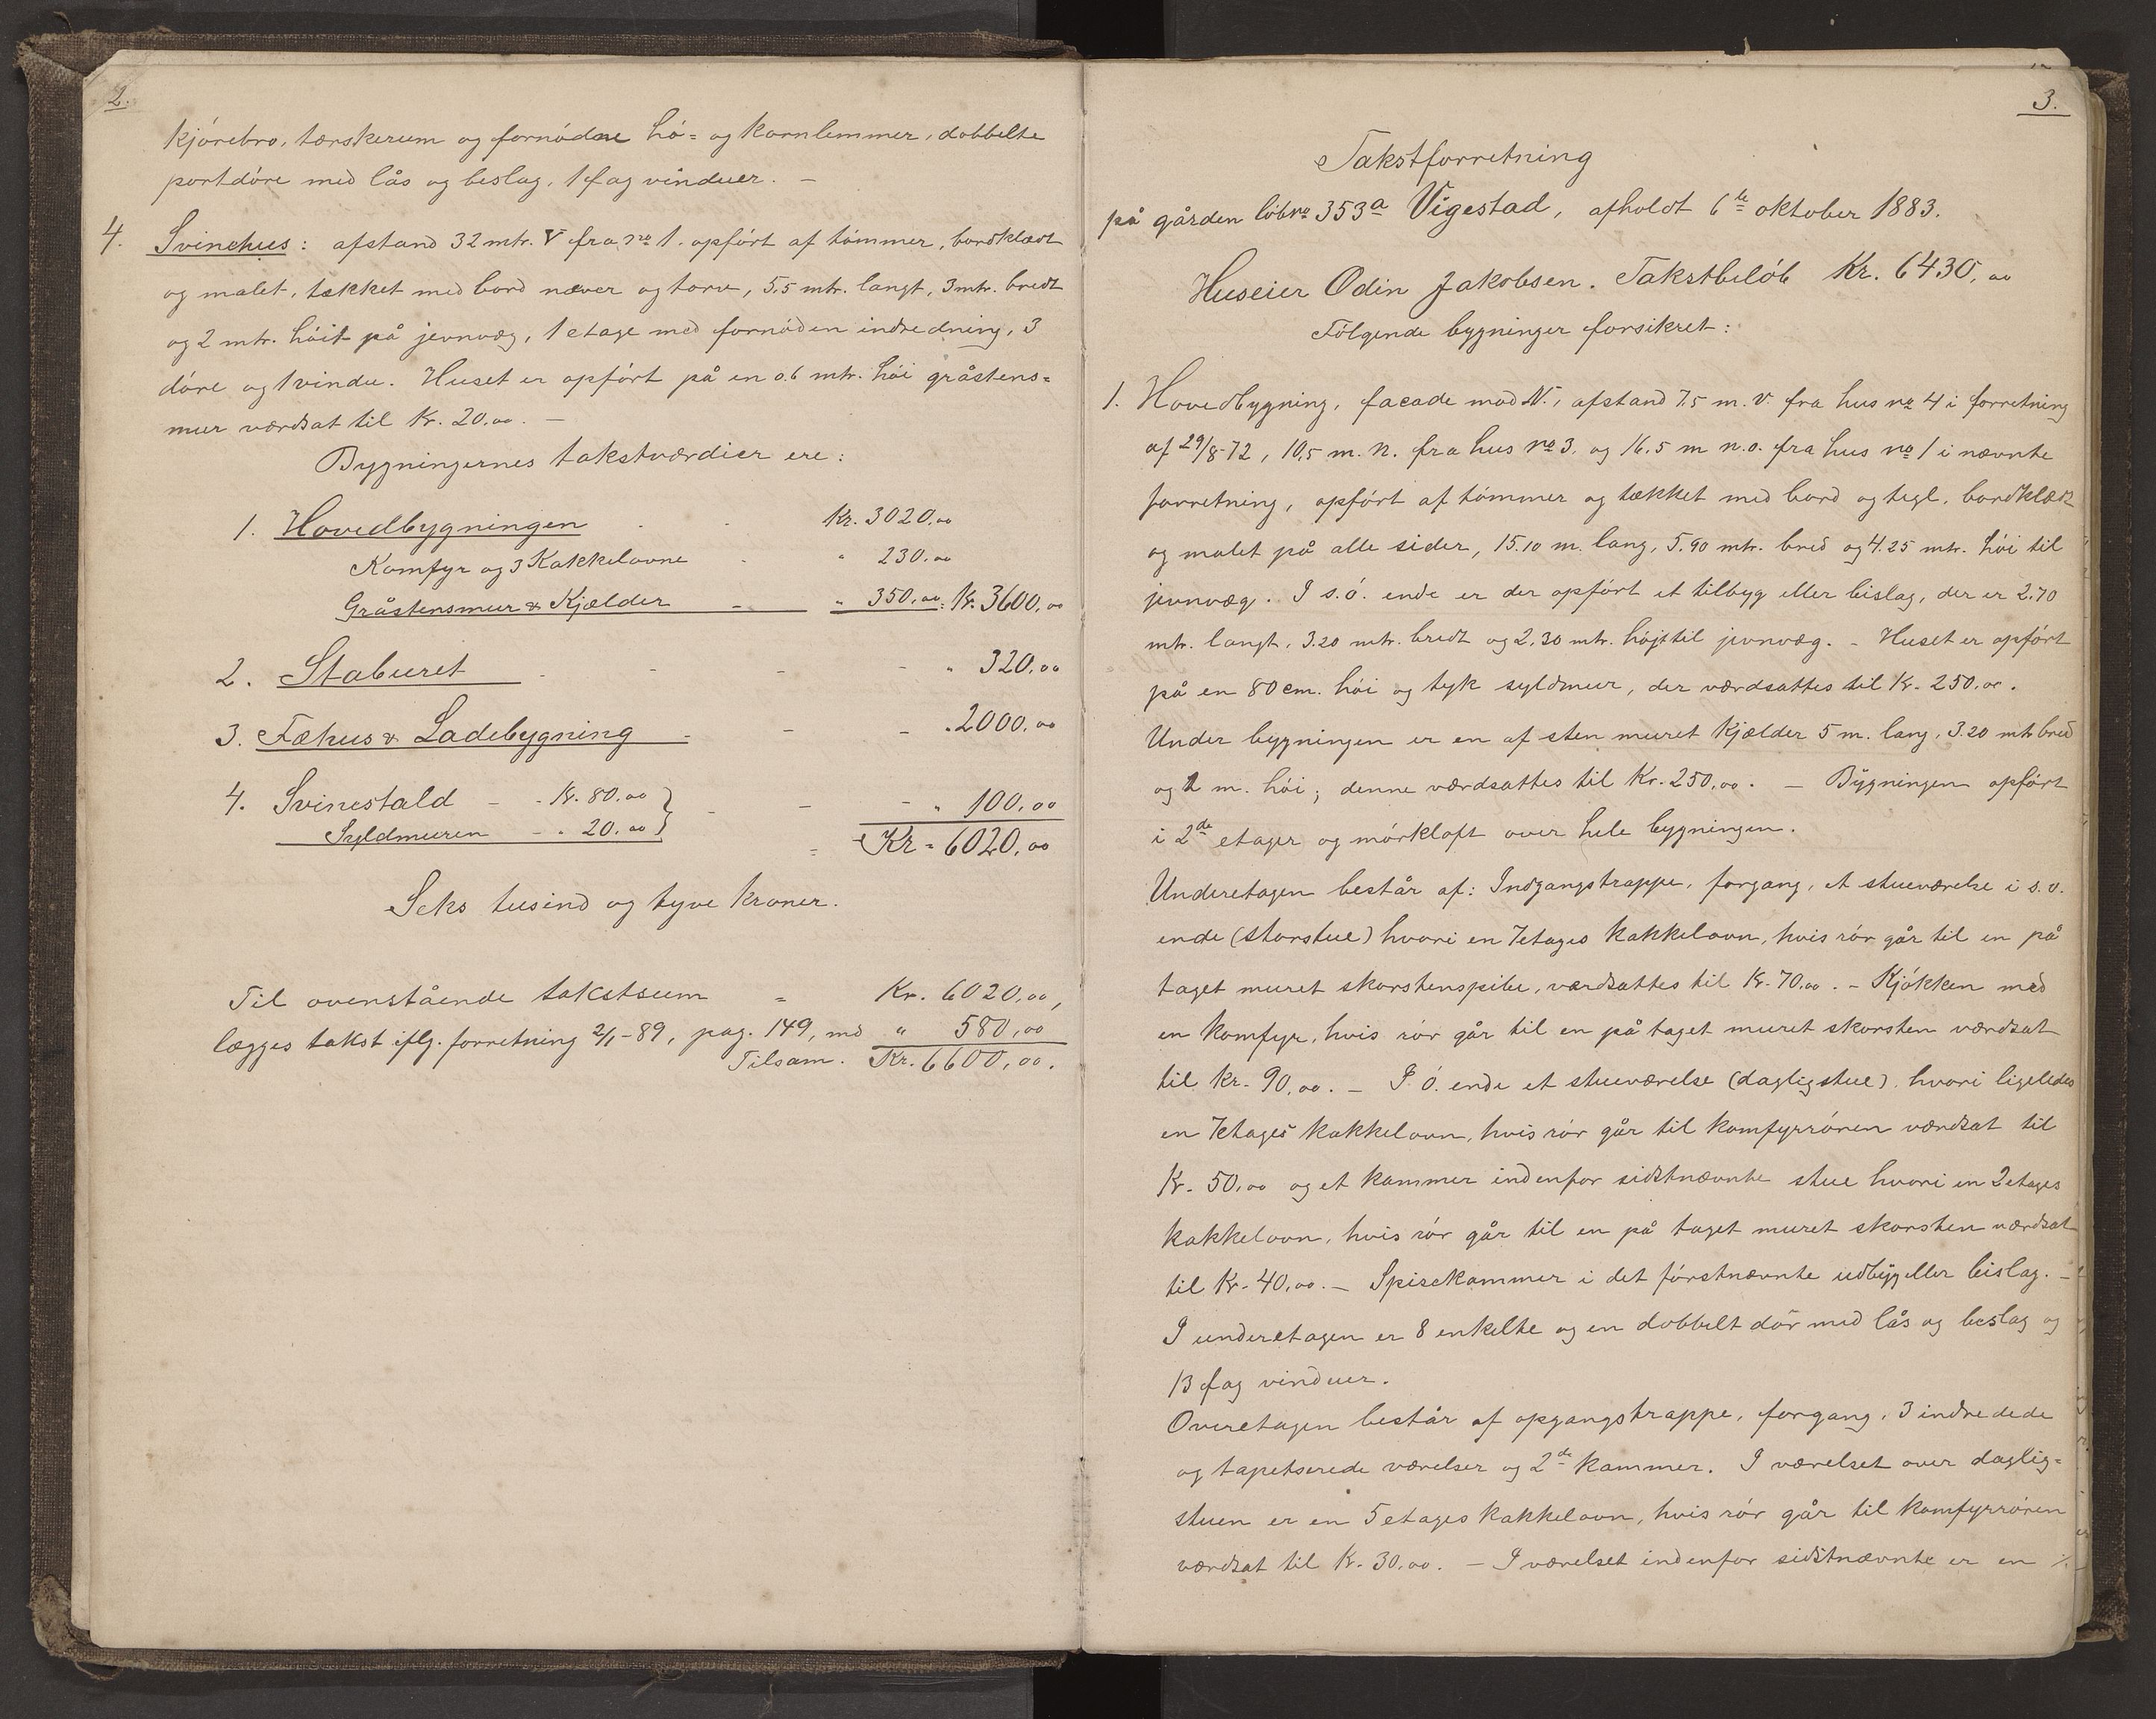 2.
kjórebro, tærskerum og fornódne hó- og kornlemmer, dobbelte
portdóre med lås og beslag, 1 fag vinduer. –
4. Svinehus: afstand 32 mtr. V fra no 1. opfórt af tómmer, bordklædt
og malet, tækket med bord næver og torv, 5,5 mtr. langt, 3 mtr. bredt
og 2 mtr. hóit på jevnvæg, 1 etage med fornóden indredning, 3
dóre og 1 vindu. Huset er opfórt på en 0.6 mtr. hói gråstens-
mur værdsat til Kr. 20.00. –
Bygningernes takstværdier ere:
1. Hovedbygningen - - Kr. 3020.00
Komfyr og 3 Kakkelovne - " 230.00
Gråstensmur & Kjælder - " 350,00 = Kr. 3600,00
2. Staburet - - - " 320,00
3. Fæhus & Ladebygning - - - " 2000.00
4. Svinestald - - Kr. 80.00 } - - - " 100,00
Syldmuren - " 20.00 }
= Kr = 6020,00
Seks tusind og tyve kroner.
Til ovenstående takstsum = Kr. 6020,00,
lægges takst iflg. forretning 2/1-89, pag. 149, md " 580,00
Tilsam. Kr. 6600,00.
3.
Takstforretning
på gården lóbno 353a Vigestad, afholdt 6te oktober 1883.
Huseier Odin Jakobsen. Takstbelób Kr. 6430,00
Fólgende bygninger forsikret:
1. Hovedbygning, facade mod N., afstand 7.5 m. v. fra hus no 4 i forretning
af 29/8-72, 10,5 m. n. fra hus no 3. og 16.5 m n.o. fra hus no 1 i nævnte
forretning, opfórt af tómmer og tækket med bord og tegl, bordklædt
og malet på alle sider, 15.10 m. lang, 5.90 mtr. bred og 4.25 mtr. hói til
jevnvæg. I s.ó. ende er der opfórt et tilbyg eller bislag, der er 2.70
mtr. langt, 3.20 mtr. bredt og 2,30 mtr. hójt til jevnvæg. – Huset er opfórt
på en 80 cm. hói og tyk syldmur, der værdsattes til Kr. 250.00.
Under bygningen er en af sten muret kjælder 5 m. lang, 3.20 mtr bred
og 2 m. hói; denne værdsattes til Kr. 250,00. – Bygningen opfórt
i 2de etager og mórkloft over hele bygningen.
Underetagen består af: Indgangstrappe, forgang, et stueværelse i s.v.
ende (storstue) hvori en 7etages kakkelovn, hvis rór går til en på
taget muret skorstenspibe, værdsattes til Kr. 70.00. – Kjókken med
en komfyr, hvis rór går til en på taget muret skorsten værdsat
til Kr. 90,00. – I ó. ende et stueværelse (dagligstue) hvori ligeledes
en 7etages kakkelovn, hvis rór går til komfyrróren værdsat til
Kr. 50,00 og et kammer indenfor sidstnævnte stue hvori en 2etages
kakkelovn, hvis rór går til en på taget muret skorsten værdsat
til Kr. 40,00. – Spisekammer i det fórstnævnte udbyg eller bislag. –
I underetagen er 8 enkelte og en dobbelt dór med lås og beslag og
13 fag vinduer.
Overetagen består af opgangstrappe, forgang, 3 indredede
og tapetserede værelser og 2de kammer. I værelset over daglig-
stuen er en 5 etages kakkelovn, hvis rór går til komfyrróren
værdsat til Kr. 30,00. – I værelset indenfor sidstnævnte er en ./.